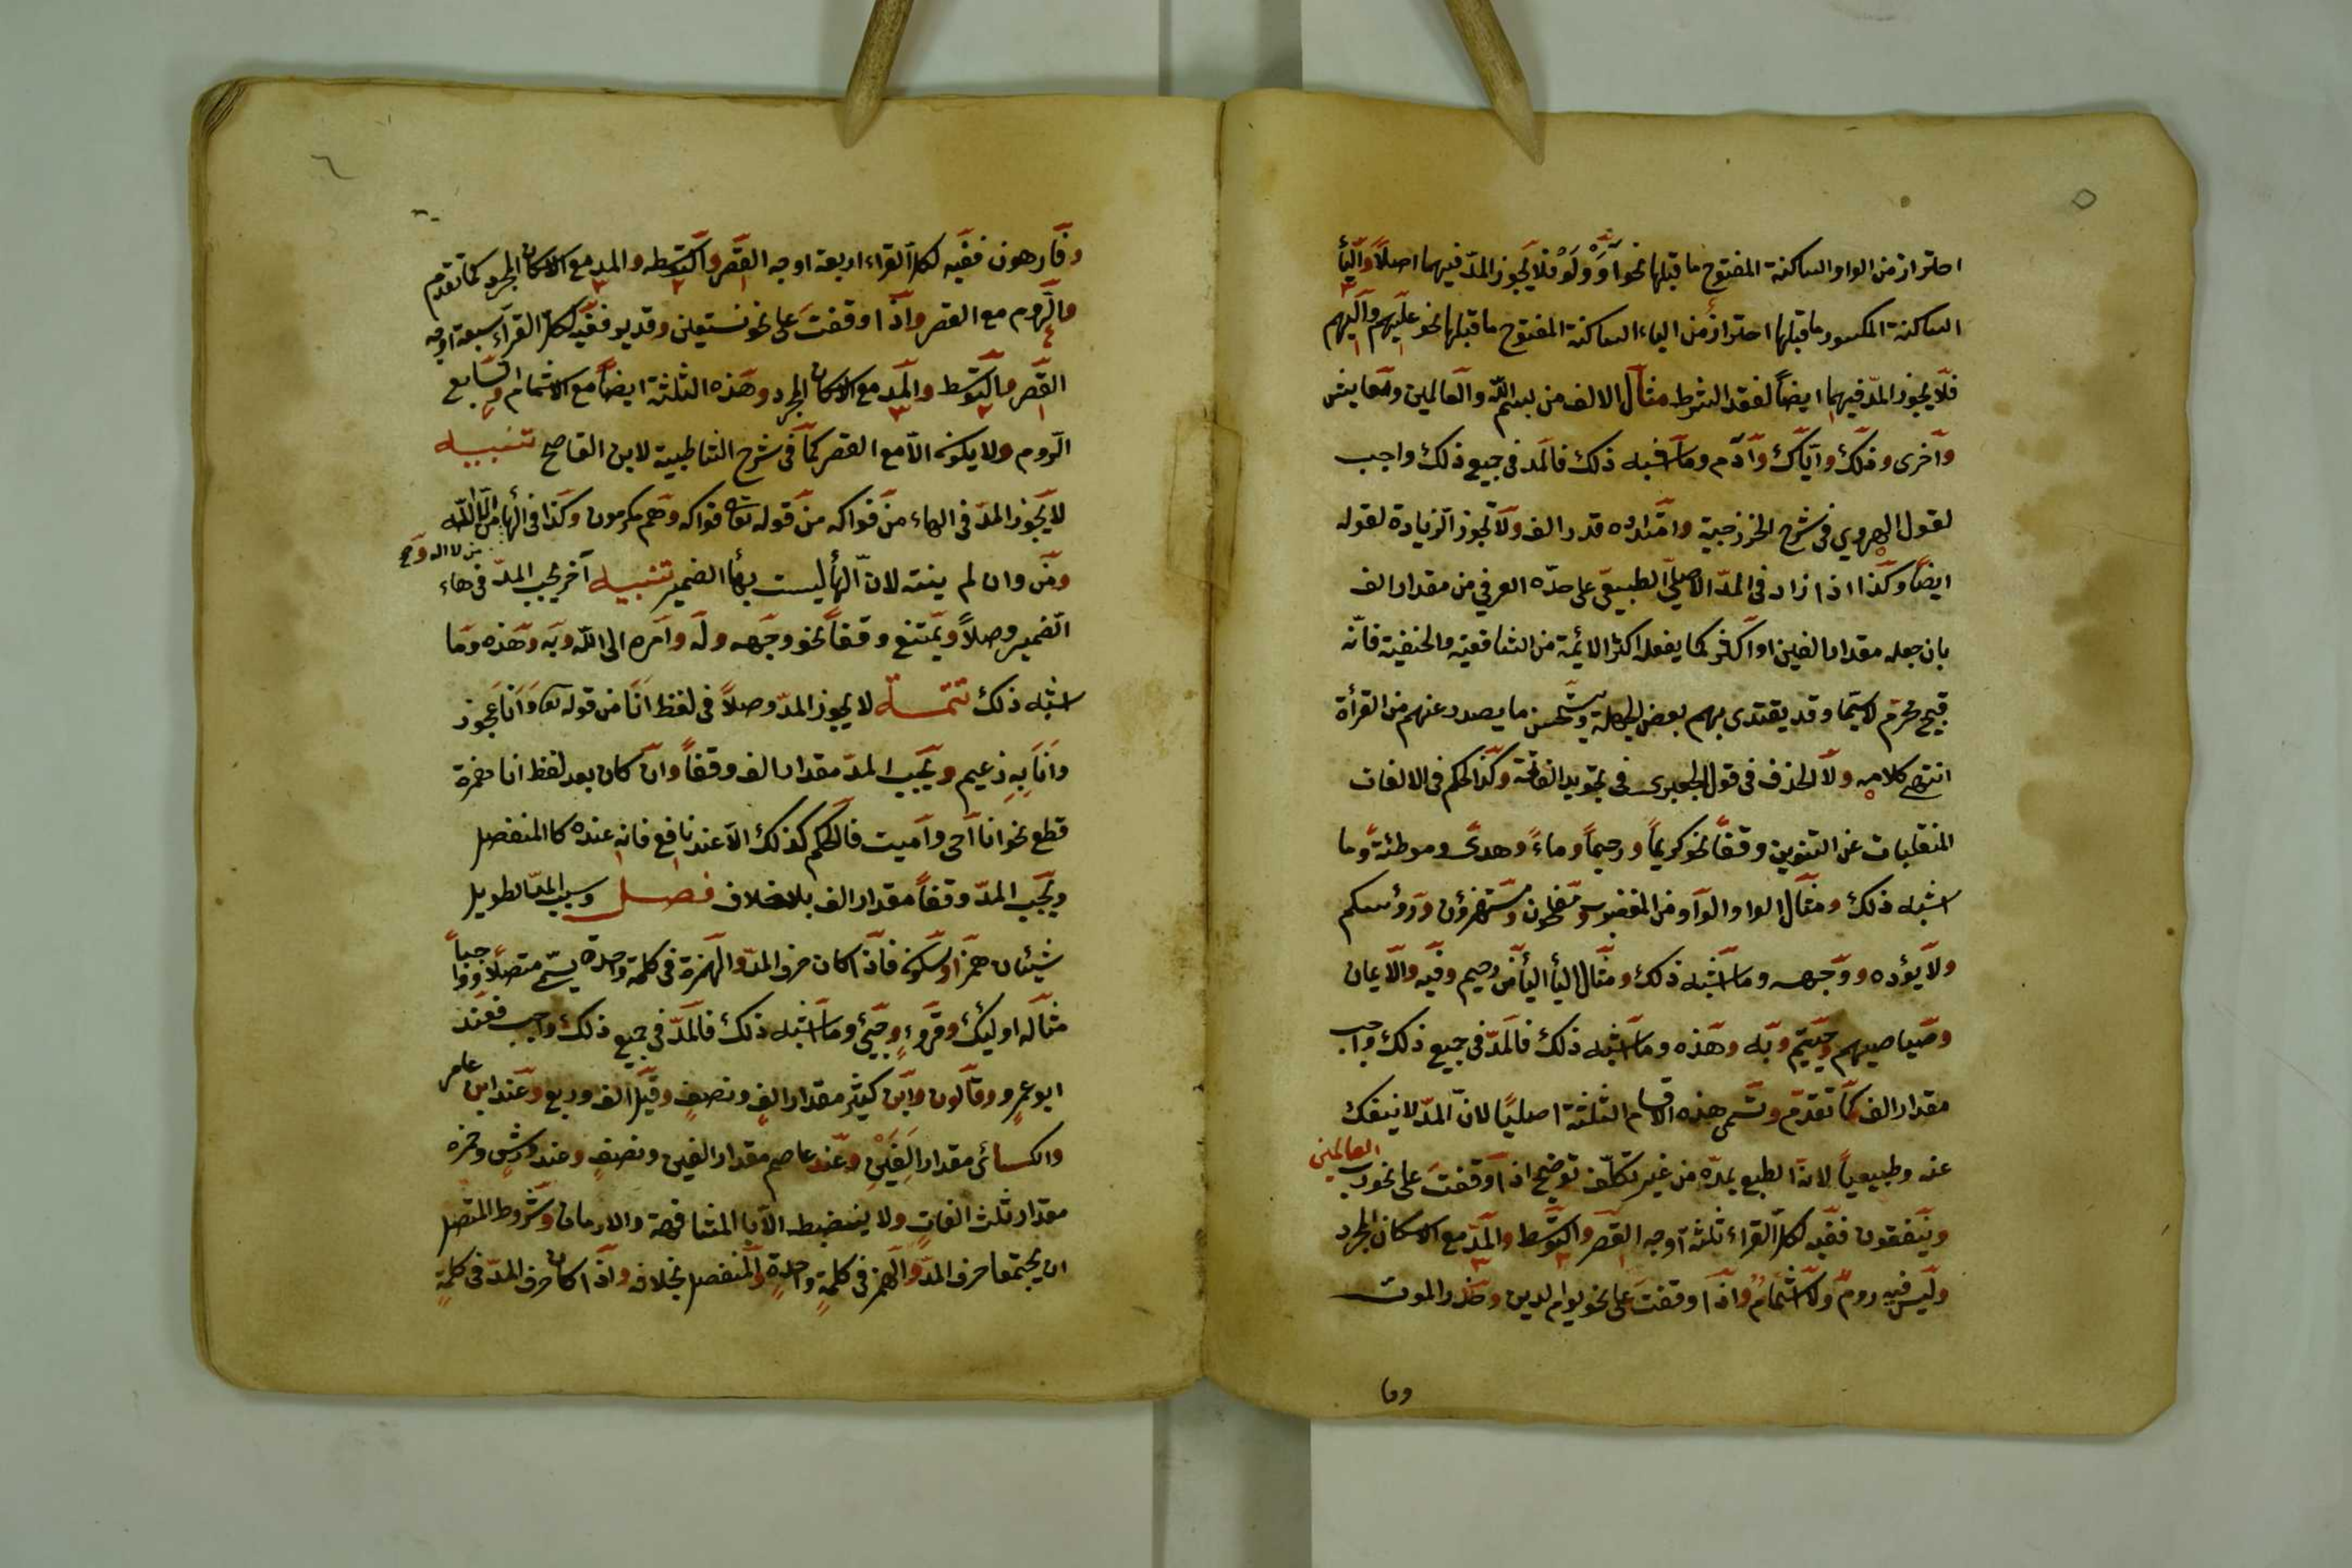 ٥
احتراز من الواو الساكنة المفتوح ما قبلها نحو أَوْ وَلَوْ فلا يجوز المدّ فيهما اصلاً والياء
الساكنة المكسور ما قبلها احتراز من الياء الساكنة المفتوح ما قبلها نحو عليهم واليهم
فلا يجوز المدّ فيهما ايضاً لفقد الشرط مثال الالف من بسم الله والعالمين ومعايش
وآخرى وذلك واياك وآدم وما اشبه ذلك فالمد فى جميع ذلك واجب
لقول الهروي فى شرح الخزرجية وامتداده قدر الف ولا تجوز الزيادة لقوله
ايضاً وكذا اذا زاد فى المدّ الاصليّ الطبيعيّ على حدّه العرفي من مقدار الف
بان جعله مقدار الفين او اكثر كما يفعله اكثر الائمة من الشافعية والحنفية فانّه
قبيح محرّم لاسيّما وقد يقتدى بهم بعض الجهلة ويستحسن ما يصدر عنهم من القرأة
انتهى كلامه ولا الحذف فى قول الجعبرى فى تجويد الفاتحة وكذا الحكم فى الالفات
المنقلبات عن التنوين وقفاً نحو كريماً ورحيماً وماءً وهدىً وموطئةً وما
اشبه ذلك ومثال الواو الواو من المغضوب ومفلحون ومستهزؤن ورؤسكم
ولا يؤده ووجهه وما اشبه ذلك ومثال اليأ اليأ من رحيم وفيه والايمان
وصياصيهم وجيتم وبه وهذه وما اشبه ذلك فالمدّ فى جميع ذلك واجب
مقدار الف كما تقدّم وتسمى هذه الاقسام الثلثة اصليًا لانّ المدّ لا ينفك
عنه وطبيعياً لانّ الطبع يمدّه من غير تكلّف توضيح اذا وقفتَ على نحو رب العالمين
وينفقون ففيه لكل القراء ثلثة اوجه القصر والتوسّط والمدّ مع الاسكان المجرد
وليس فيه رومٌ ولا اشمامٌ واذا وقفتَ على نحو يوام الدين وحذر الموت
وفا
٦
وفارهون ففيه لكل القراء اربعة اوجه القصر والتوسّطه والمد مع الاسكان المجرد كما تقدم
والروم مع القصر واذا وقفتَ على نحو نستعين وقدير ففيه لكل القرآء سبعة اوجه
القصر والتوسّط والمد مع الاسكان المجرد وهذه الثلثة ايضاً مع الاشمام والسابع
الروم ولا يكون الاّ مع القصر كما فى شرح الشاطبية لابن القاصح تنبيه
لا يجوز المدّ فى الهاء من فواكه من قوله تعا فواكه وهم مكرمون وكذا فى ألهاء من الله
من لا اله
ومن وان لم ينته لانّ الهأ ليست بهأ الضمير تنبيه آخر يجب المدّ فى هاء
الضمير وصلاً ويمتنع وقفاً نحو وجهه وله وامره الى الله وبه وهذه وما
اشبه ذلك تتمة لا يجوز المدّ وصلاً فى لفظ انا من قوله تعا وَاَنَا عجوز
وانا بِهِ زعيم ويجب المدّ مقدار الف وقفاً وان كان بعد لفظ انا همزة
قطع نحو انا احى واميت فالحكم كذلك الاّ عند نافع فانه عنده كا المنفصل
ويجب المدّ وقفاً مقدار الف بلا خلاف فصل وسبب المدّ الطويل
شيئان همز او سكون فاذا كان حرف المدّ والهمزة فى كلمة واحدة يسمّى متصلاً وواجباً
مثاله اوليك وقروءٍ وجيئ وما اشبه ذلك فالمدّ فى جميع ذلك واجب فعند
ابو عمرٍو وقالون وابن كثير مقدار الفٍ ونصفٍ وقيل الف وربع وعند ابن عامر
والكسائى مقدار الفَيْنِ وعند عاصم مقدار الفين ونصفٍ وعند ورش وحمزه
مقدار ثلث الفاتٍ ولا ينضبط الاّ با المشافهة والادمان وشروط المتصل
ان يجتمعا حرف المدّ والهمز فى كلمةٍ واحدةٍ والمنفصل بخلافه واذا كان حرف المدّ فى كلمةٍ